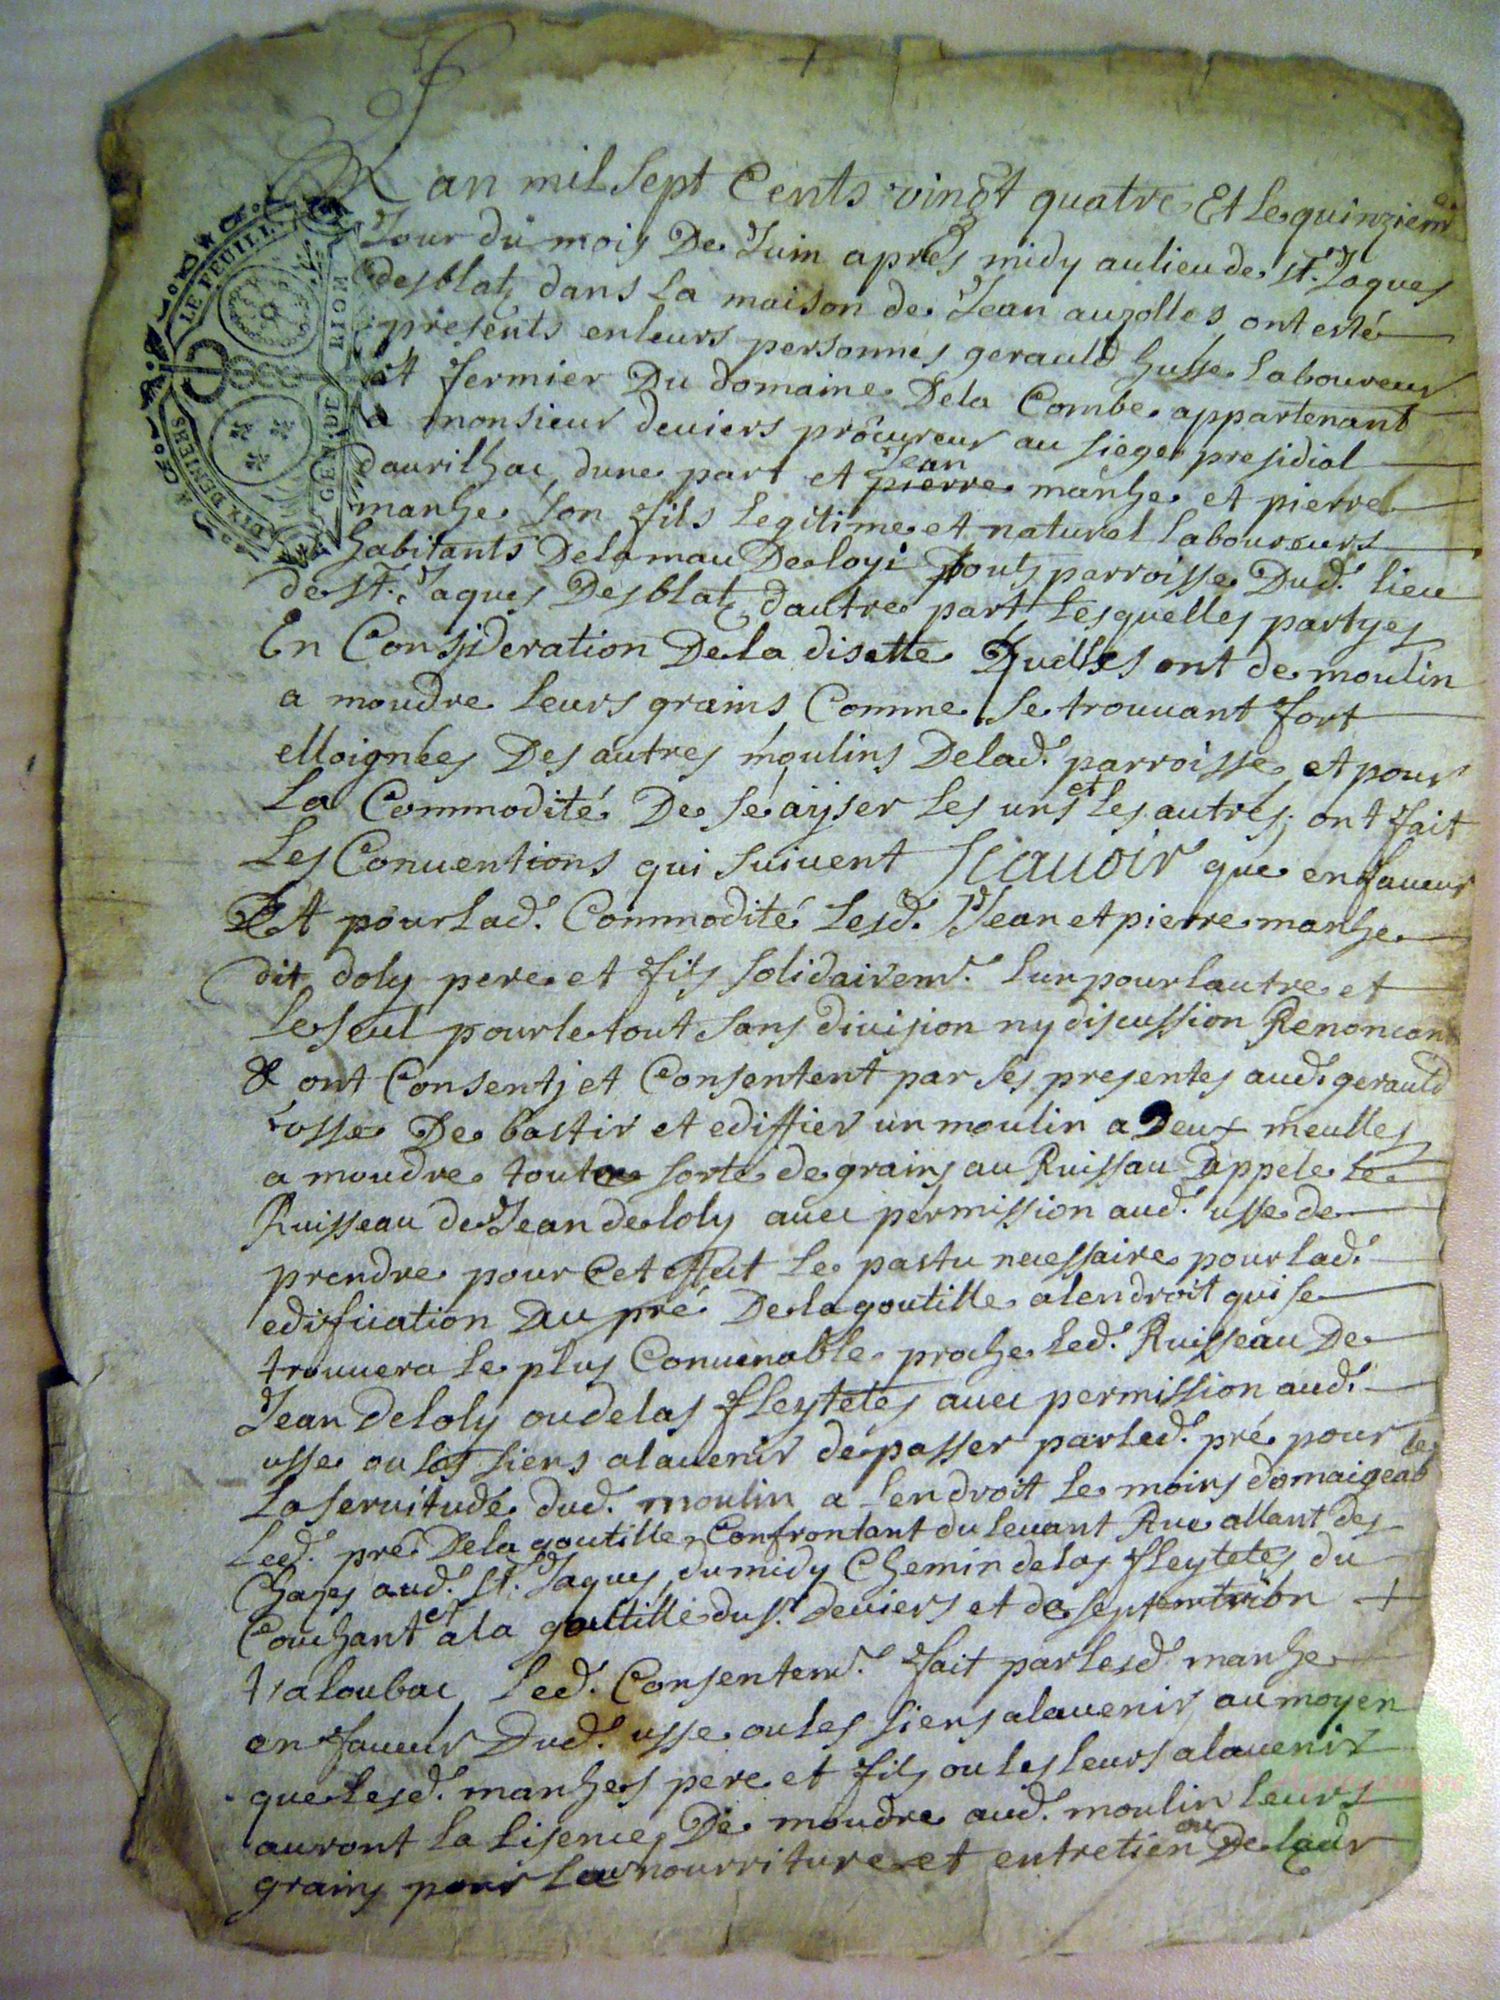 Lan mil sept Cents vingt quatre Et Le quinzieme
Jour du mois De Juin apres midy au lieu de St. Jaques
desblatz dans la maison de Jean auzolles ont esté
presents en leurs personnes gerauld husse Laboureur
et fermier Du domaine Dela Combe appartenant
a monsieur deviers procureur au siege presidial
daurilhac dune part et pierre Jean manhe et pierre
manhe son fils Legitime et naturel Laboureurs
habitants Delamau Deloyi touts parroisse Dud. lieu
de St. Jaques Desblatz dautre part Lesquelles partyes
En Consideration Dela disette Quelles ont de moulin
a moudre Leurs grains Comme se trouvant fort
elloignées Des autres moulins Delad. parroisse et pour
La Commodité De séaiyser Les uns et Les autres ont fait
Les Conventions qui suivent Scavoir que en faveur
Et pour Lad. Commodité Lesd. Jean et pierre manhe
dit doly pere et fils solidairemt. Lun pour lautre et
Le seul pour le tout sans division ny discussion Renoncant
& ont Consentj et Consentent par ses presentes aud. gerauld
usse De bastir et ediffier un moulin a Deux meulles
a moudre toute sorte de grains au Ruissau appele Le
Ruisseau de Jean deloly avec permission aud. usse de
prendre pour Cet effect Le pastu necessaire pour lad.
edification Du pré De la goutille alendroit qui se
trouvera Le plus Convenable proche Led. Ruisseau De
Jean Deloly ou de las fleytetes avec permission aud.
usse ou les siens alavenir de passer par led. pré pour
La servitude dud. moulin a Lendroit Le moins domaigeable
Led. pré De la goutille Confrontant du levant Rue allant des
Chazes aud. St. Jaques, du midy Chemin de las fleytetes du
Couchant et a la goutille du sr. deviers et de septemtrion +
Valoubac Led. Consentemt. fait par Lesd. manhe
en faveur Dud. usse ou les siens alavenir au moyen
que Lesd. manhes pere et fils ou les leurs alavenir
auront La lisence De moudre aud. moulin leurs
grains pour Leur nourriture et entretien ou De leur
LE FEUILL.
GEN. DE RIOM
DIX DENIERS